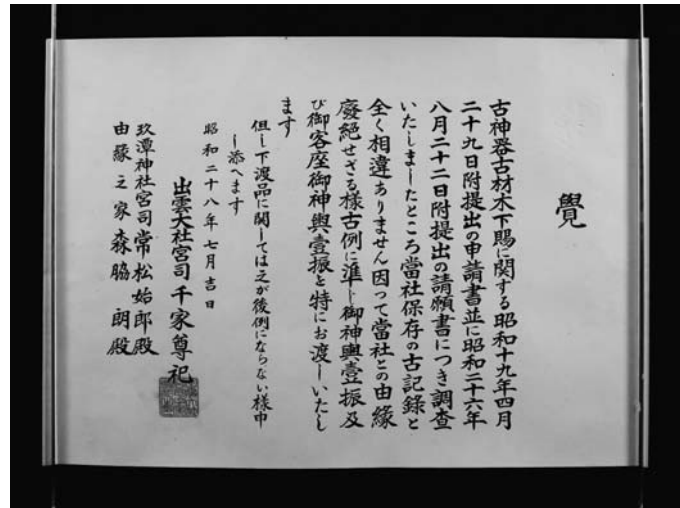 覺
古神器古材木下賜に関する昭和十九年四月
二十九日附提出の申請書並に昭和二十六年
八月二十二日附提出の請願書につき調査
いたしましたところ當社保存の古記録と
全く相違ありません因つて當社との由緣
廢絶せざる樣古例に準じ御神輿壹振及
び御客座御神輿壹振と特にお渡しいたし
ます
但し下渡品に関しては之が後例にならない樣申
し添へます
昭和二十八年七月吉日
出雲大社宮司千家尊祀
玖潭神社宮司常松始郎殿
由緣之家森脇 朗殿